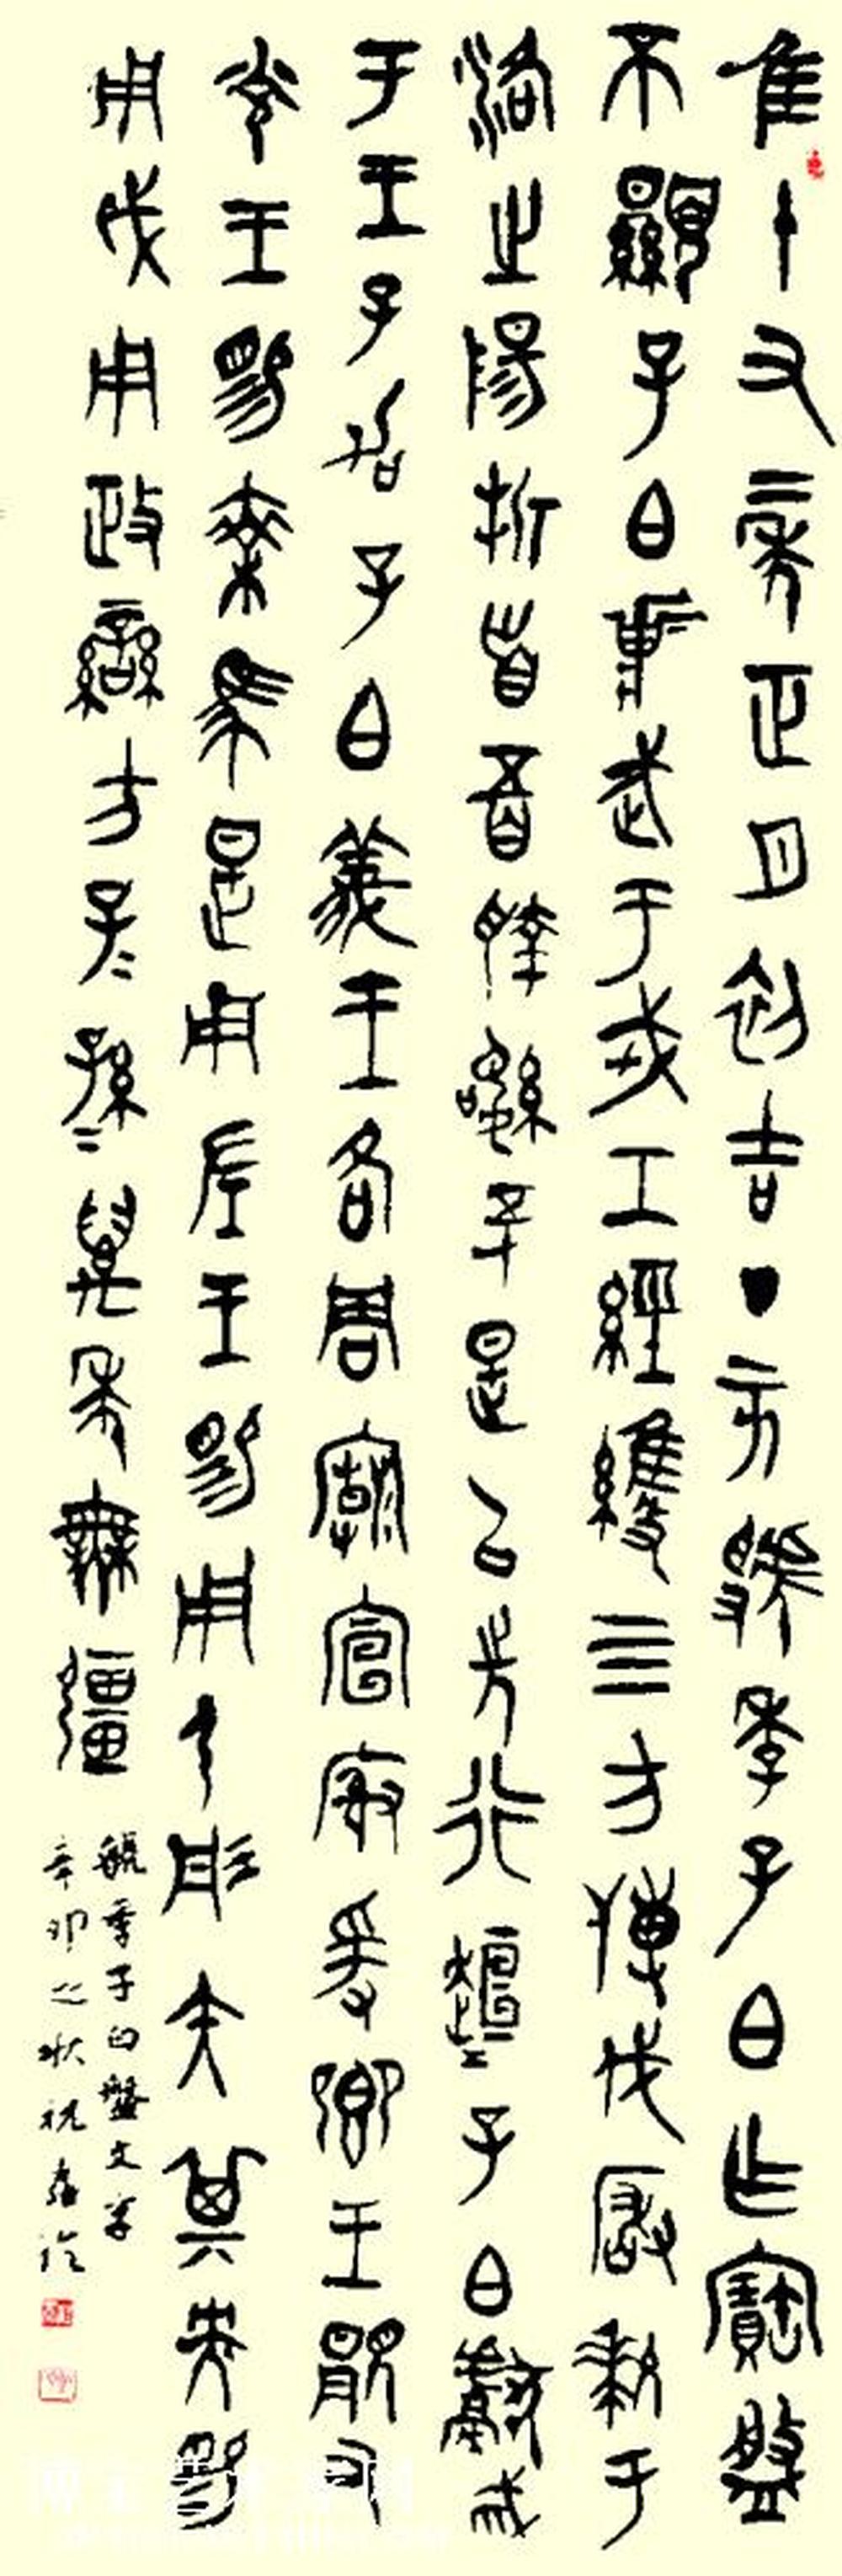 隹十又二年正月初吉丁亥虢季子白乍寶盤
不顯子白壯武于戎工經維四方搏伐玁狁于
洛之陽折首五百執訊五十是以先行桓子白獻馘
于王王孔加子白義王各周廟宣榭爰卿王顯又
光王賜乘馬是用左王賜用弓彤矢其央賜
用戉用政蠻方子子孫孫萬年無疆
虢季子白盤文字
辛卯之秋祝嘉临